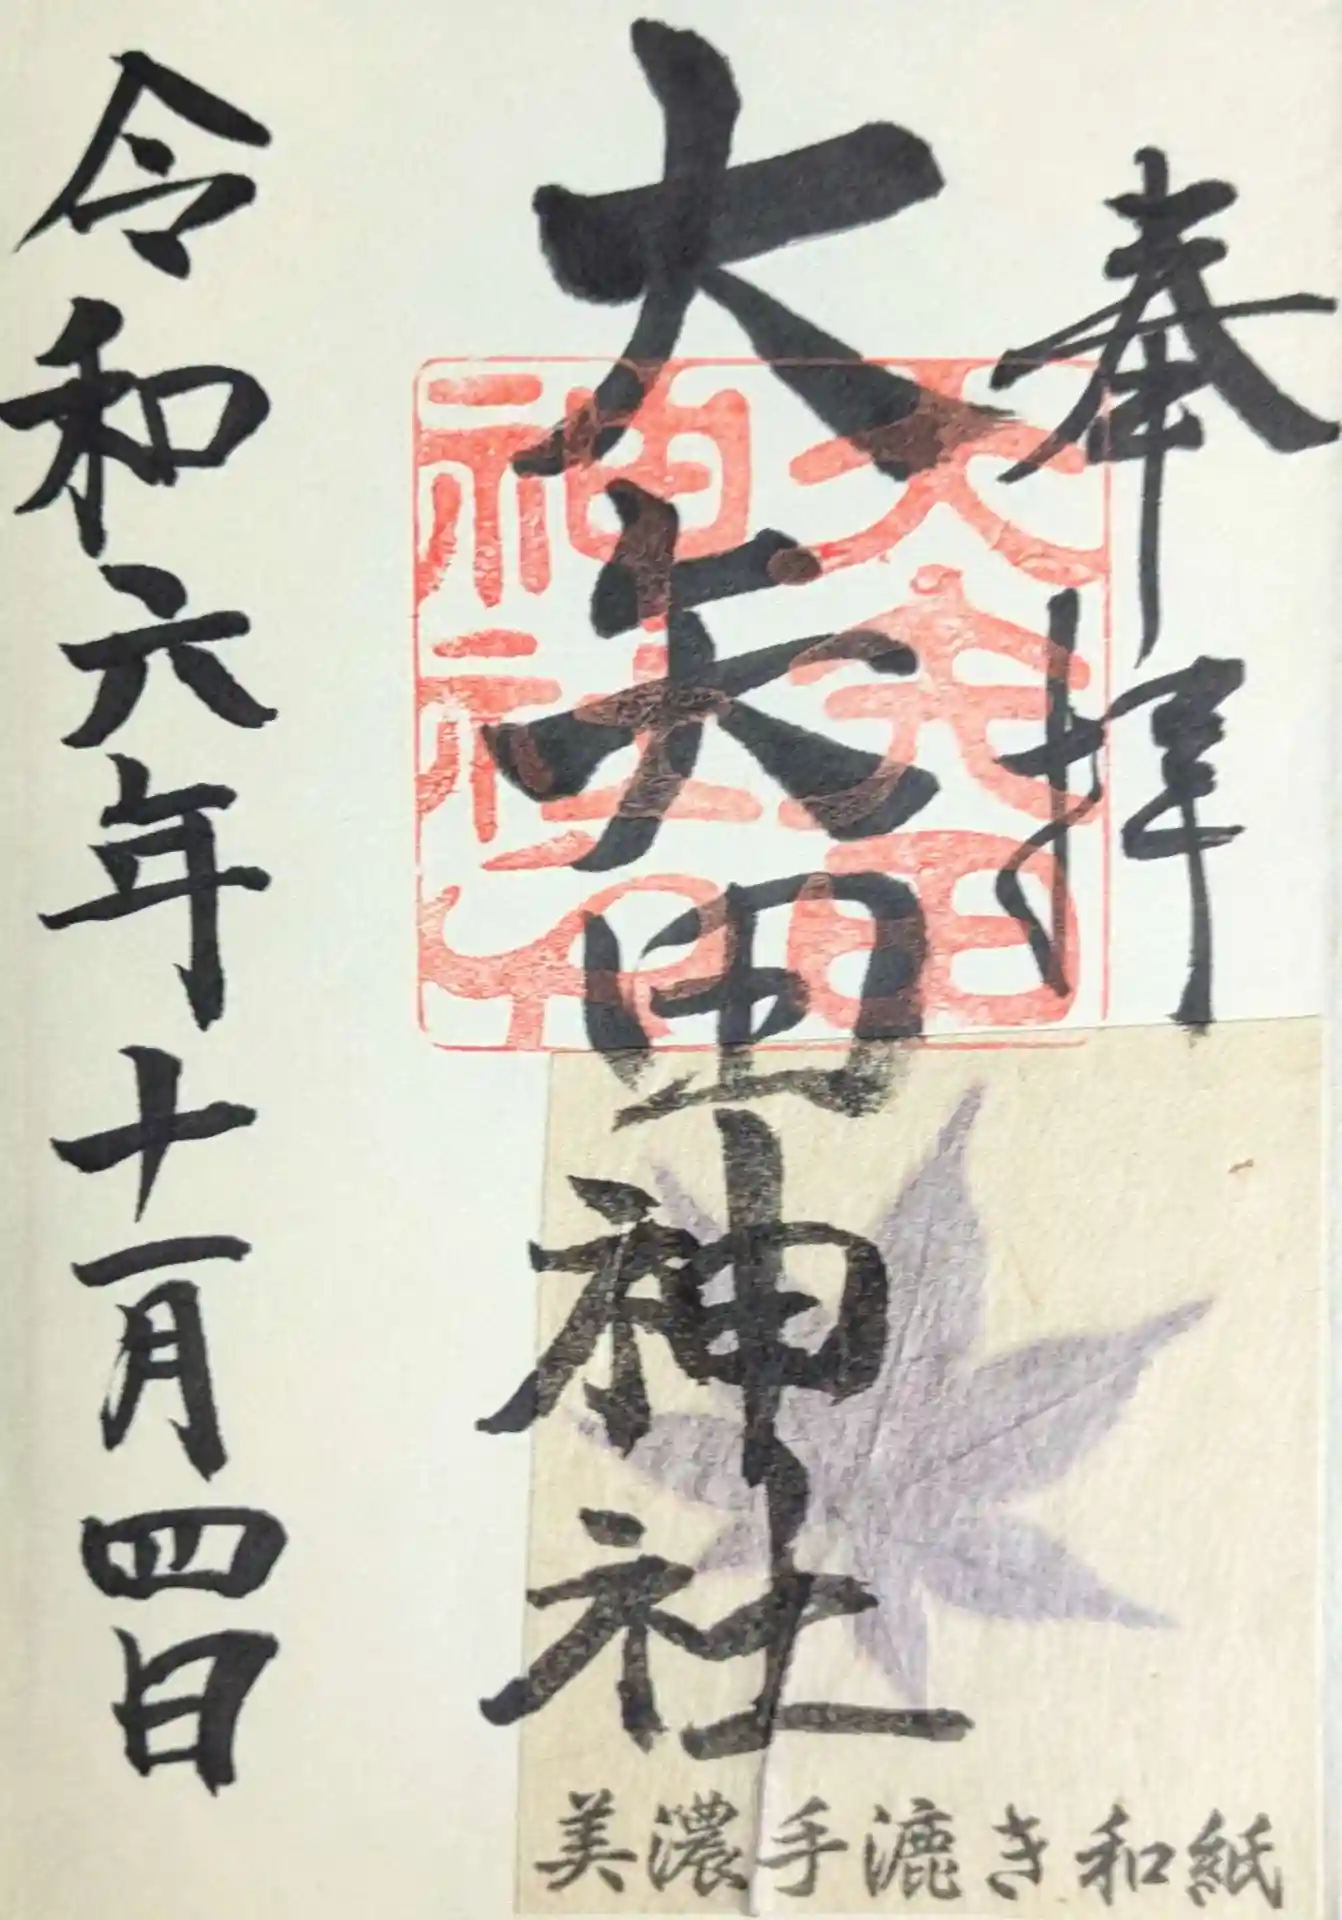 奉拝
大矢田神社
令和六年十一月四日
大矢田
神社之印
美濃手漉き和紙